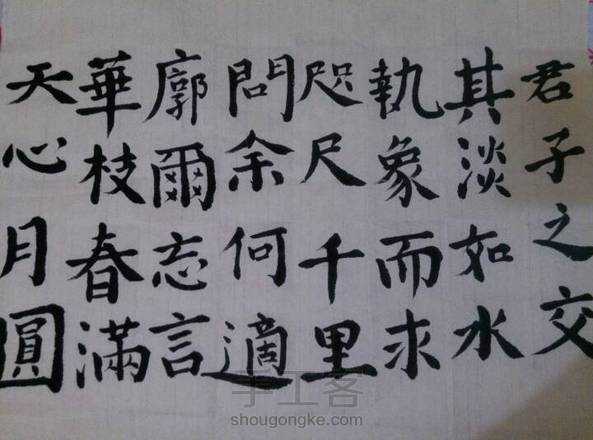 君子之交
其淡如水
執象而求
咫尺千里
問余何適
廓爾忘言
華枝春滿
天心月圓
手工客
shougongke.com